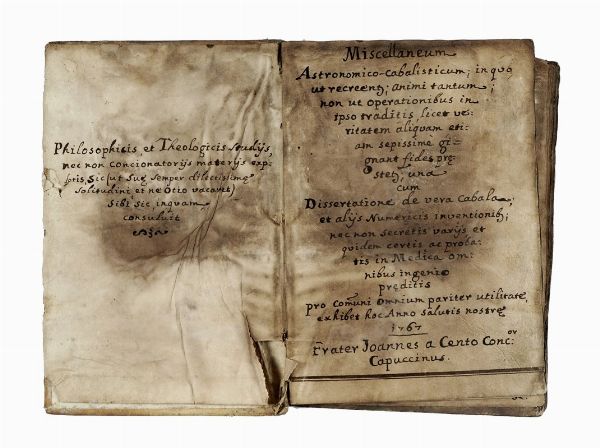 Philosophicis et Theologicis studijs,
nec non Concionatorijs materijs exp-
sic (ut suæ semper dilectissimæ
solitudini et ne Otio vacaret)
sibi sic, inquam
consuluit
Miscellaneum
Astronomico-Cabalisticum; in quo
ut recreentj animi tantum;
non ut operationibus in
ipso traditis licet ve:
ritatem aliquam eti:
am sepissime gi=
gnant fides prę
stetj, una
cum
Dissertatione de vera Cabala,
et alijs Numericis inventionibj;
nec non secretis varijs et
quidem certis ac proba:
tis in Medica om:
nibus ingenio
pręditis
pro Comuni Omnium pariter utilitate,
exhibet hoc Anno salutis nostrę
1767
Frater Joannes a Cento Conc:or
Capuccinus.